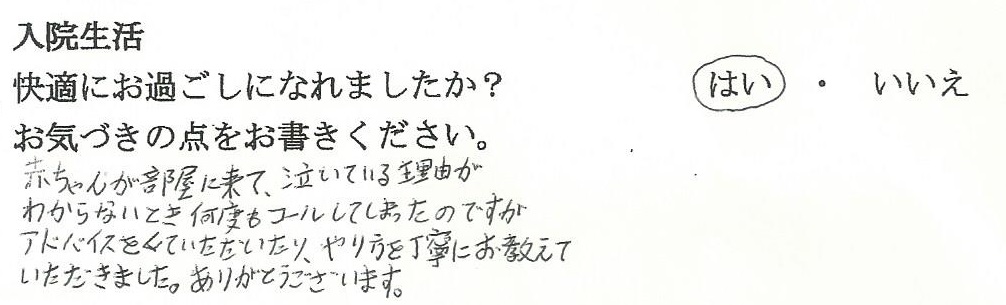 入院生活
快適にお過ごしになれましたか？ はい ・ いいえ
お気づきの点をお書きください。
赤ちゃんが部屋に来て、泣いている理由が
わからないとき何度もコールしてしまったのですが
アドバイスをくていただいたり、やり方を丁寧にお教えて
いただきました。ありがとうございます。